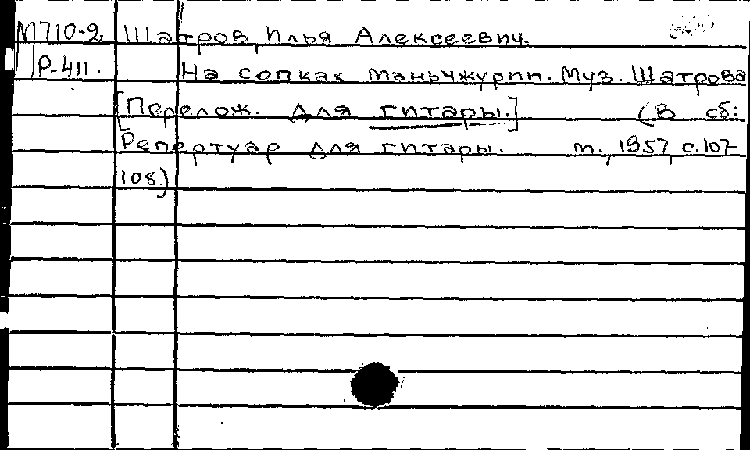 М710-2 Шатров, Илья Алексеевич.
Р-411. На сопках Маньчжурии. Муз. Шатрова
[Перелож. для гитары.] (В сб:
Репертуар для гитары. М., 1957, с.107-
108)